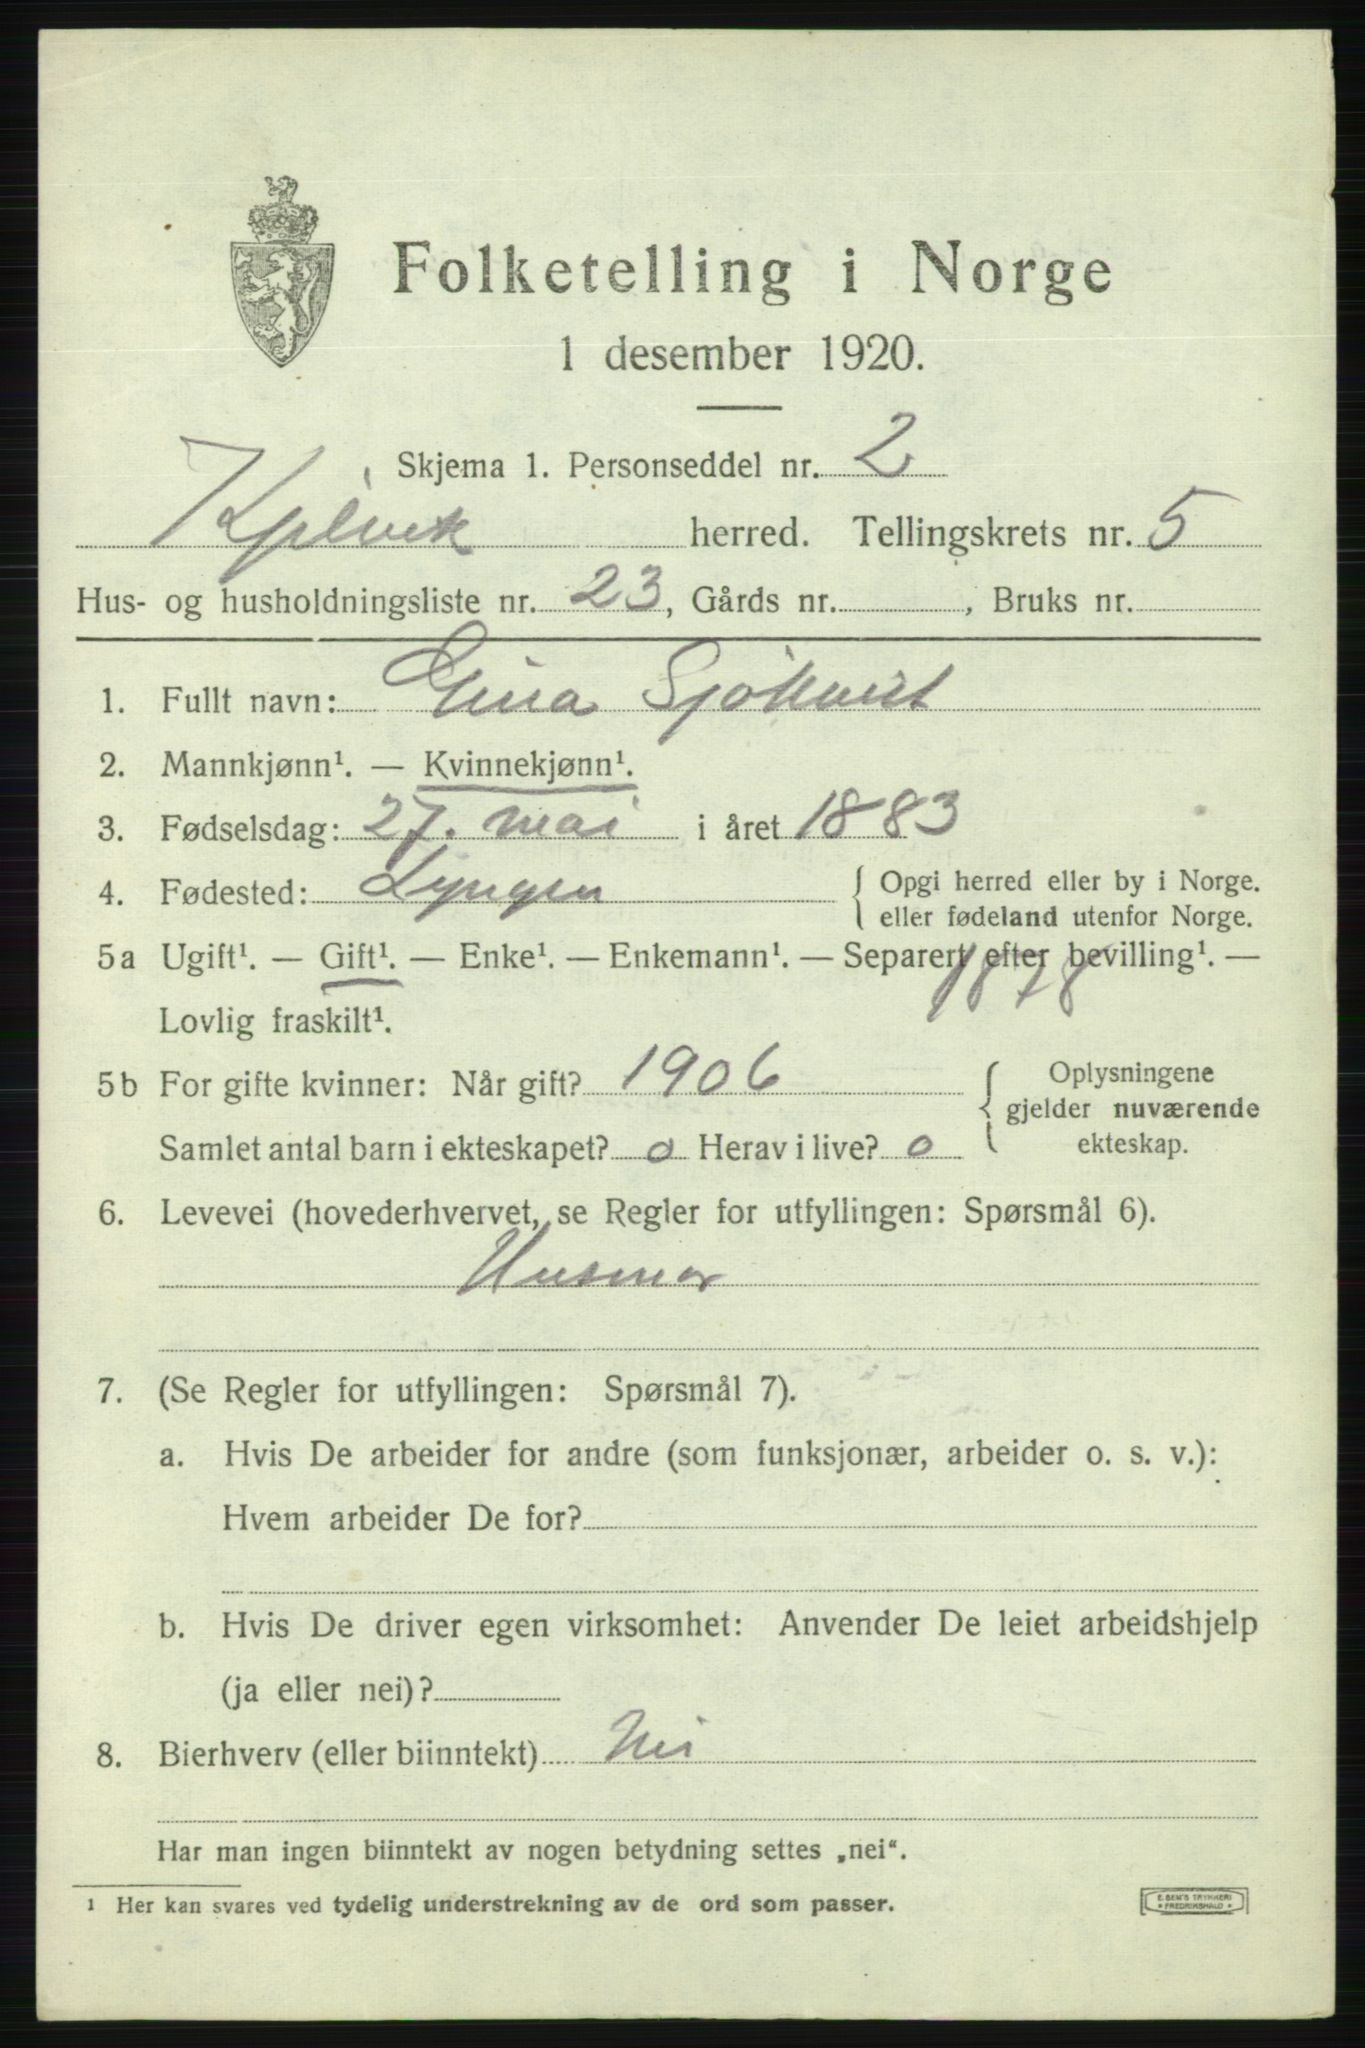 Folketelling i Norge
1 desember 1920.
Skjema 1. Personseddel nr. 2
herred. Tellingskrets nr. 5
Hus- og husholdningsliste nr. 23, Gårds nr. , Bruks nr.
1. Fullt navn: Gina Sjøkvist
2. Mannkjønn¹. — Kvinnekjønn¹.
3. Fødselsdag: 27. mai i året 1883
4. Fødested: Lyngen { Opgi herred eller by i Norge.
eller fødeland utenfor Norge.
5a Ugift¹. — Gift¹. — Enke¹. — Enkemann¹. — Separert efter bevilling¹. —
1878
Lovlig fraskilt¹.
5b For gifte kvinner: Når gift? 1906 { Oplysningene
gjelder nuværende
Samlet antal barn i ekteskapet? 0 Herav i live? 0 ekteskap.
6. Levevei (hovederhvervet, se Regler for utfyllingen: Spørsmål 6).
Husmor
7. (Se Regler for utfyllingen: Spørsmål 7).
a. Hvis De arbeider for andre (som funksjonær, arbeider o. s. v.):
Hvem arbeider De for?
b. Hvis De driver egen virksomhet: Anvender De leiet arbeidshjelp
(ja eller nei)?
8. Bierhverv (eller biinntekt) Nei
Har man ingen biinntekt av nogen betydning settes „nei“.
¹ Her kan svares ved tydelig understrekning av de ord som passer.
E. SEM'S TRYKKERI
FREDRIKSHALD